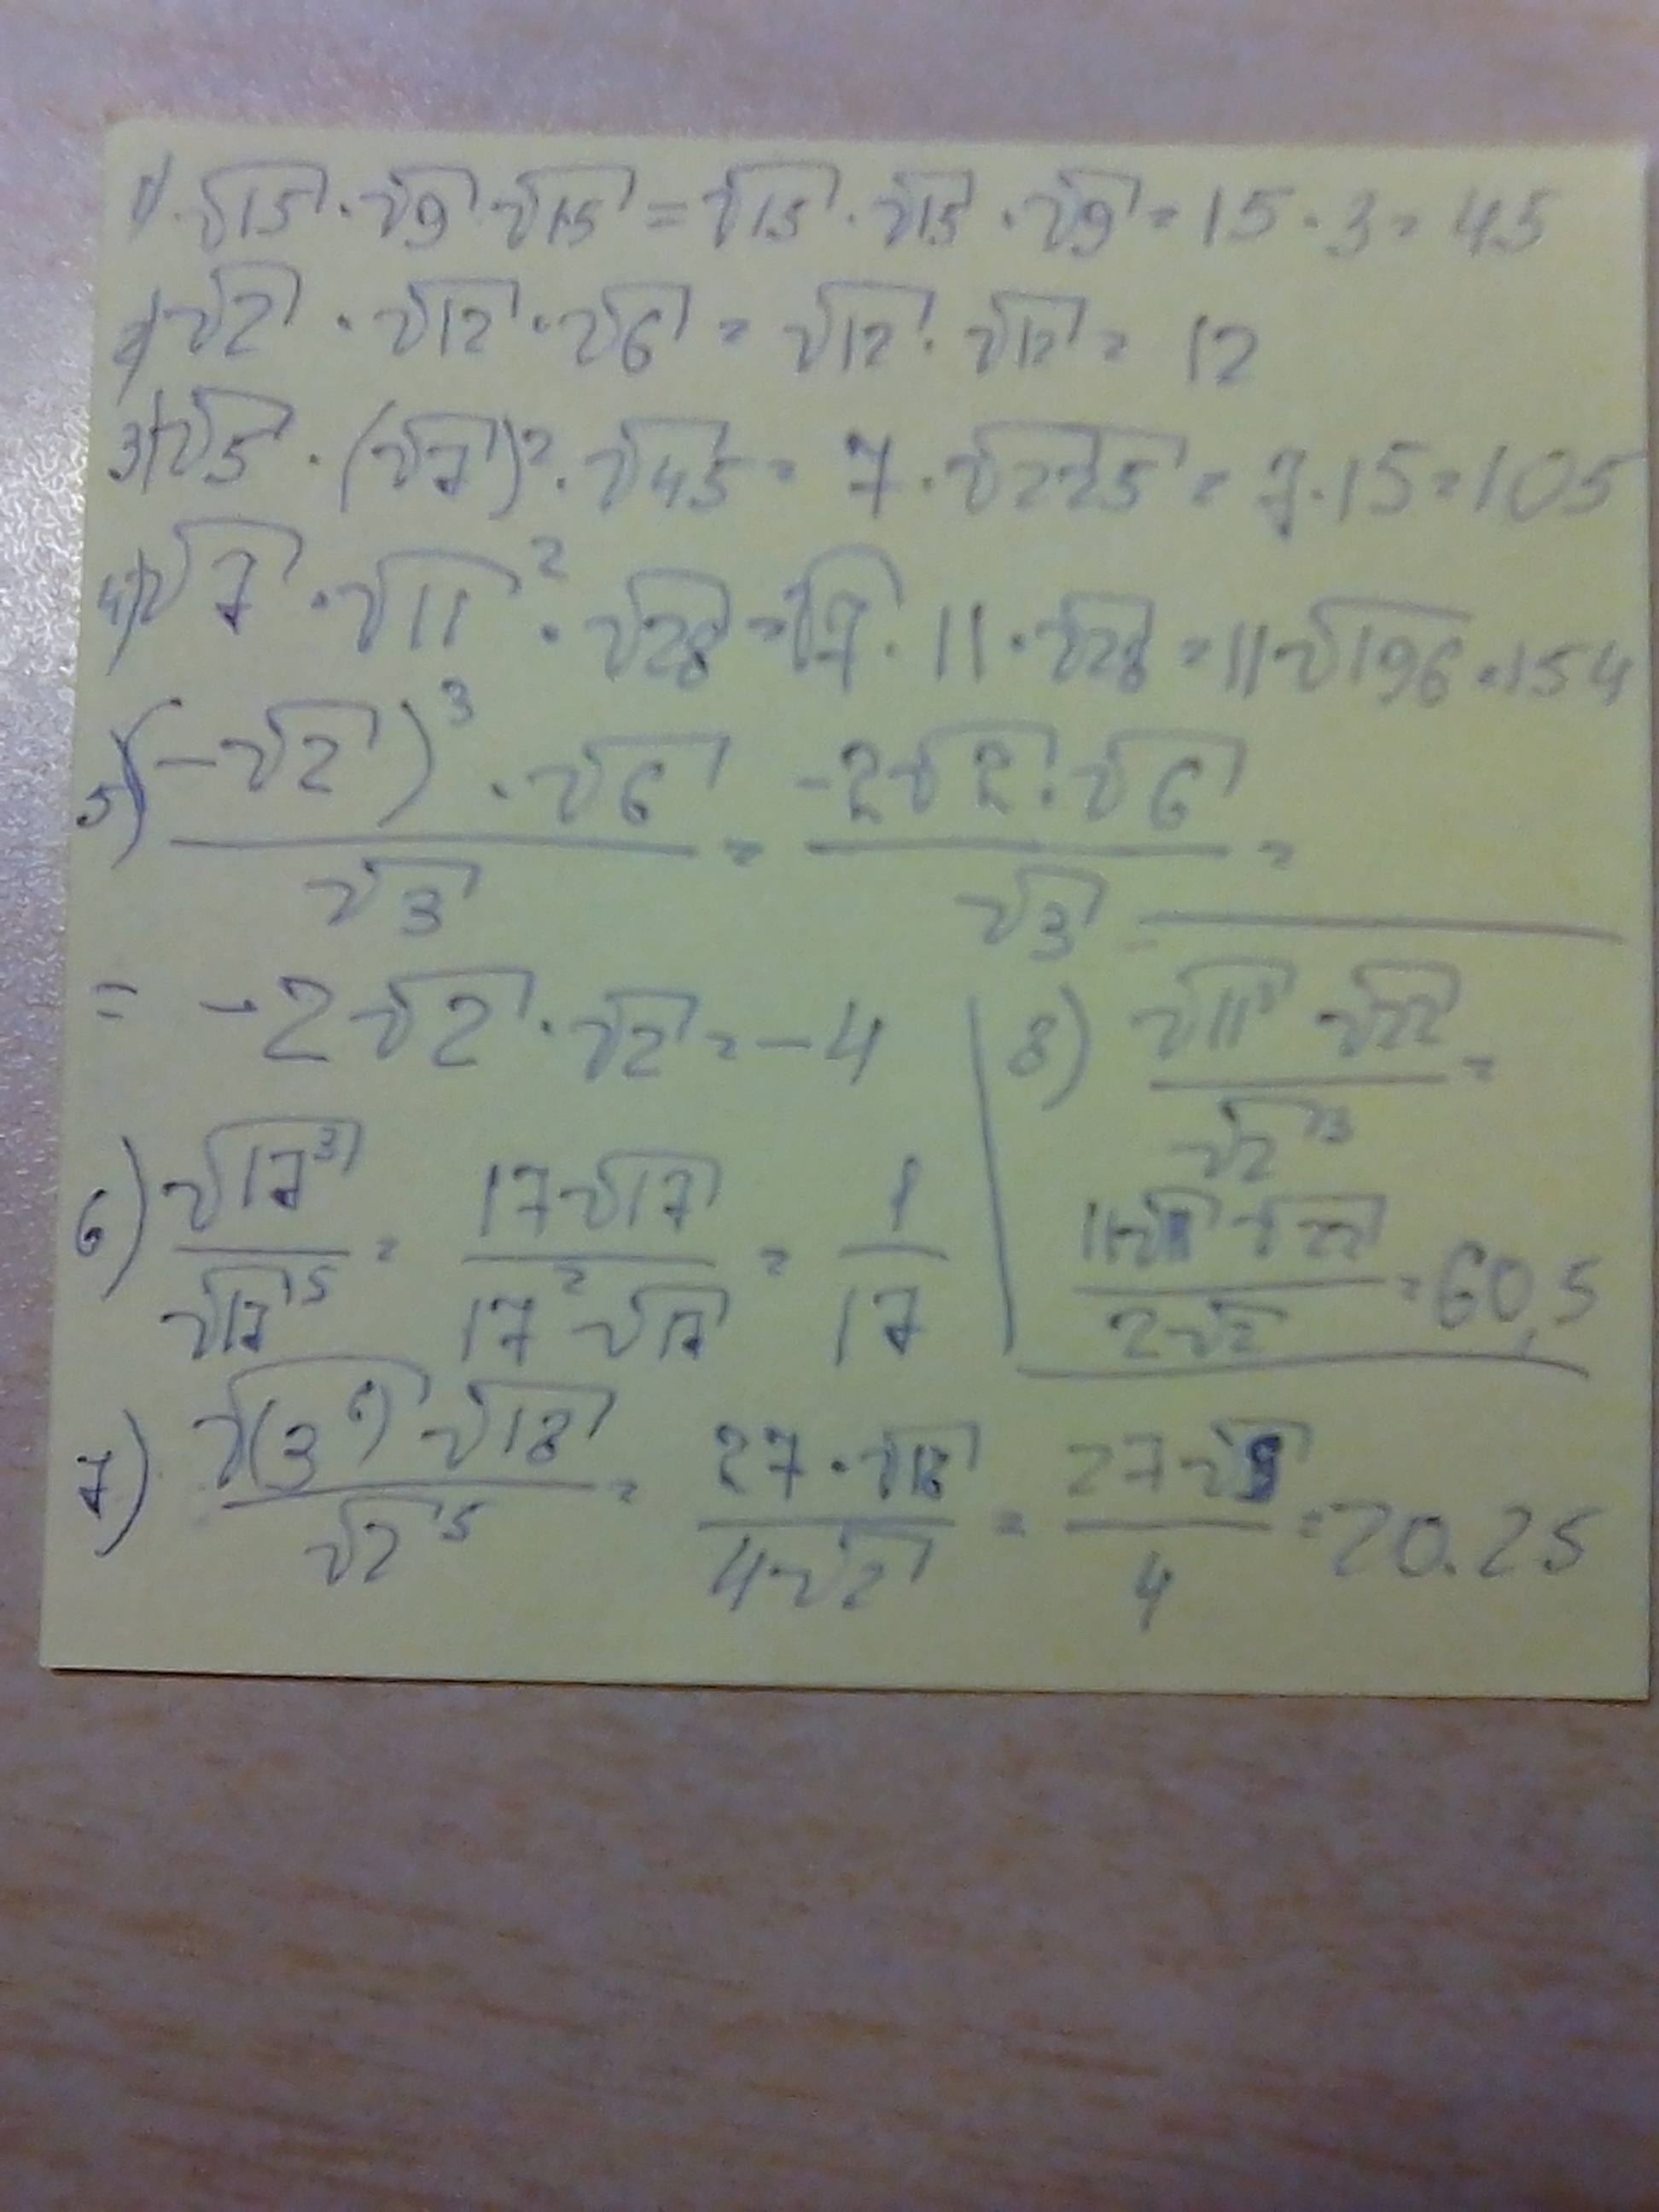 1) √15 · √9 · √15 = √15 · √15 · √9 = 15 · 3 = 45
2) √2 · √12 · √6 = √12 · √12 = 12
3) √5 · (√7)² · √45 = 7 · √225 = 7 · 15 = 105
4) √7 · √11² · √28 = √7 · 11 · √28 = 11√196 = 154
5) (-√2)³ · √6 / √3 = -2√2 · √6 / √3 =
= -2√2 · √2 = -4
6) √17³ / √17⁵ = 17√17 / 17²√17 = 1 / 17
7) √(3⁶) √18 / √2⁵ = 27 · √18 / 4√2 = 27√9 / 4 = 20.25
8) √11³ √22 / √2³ =
11√11 √22 / 2√2 = 60,5